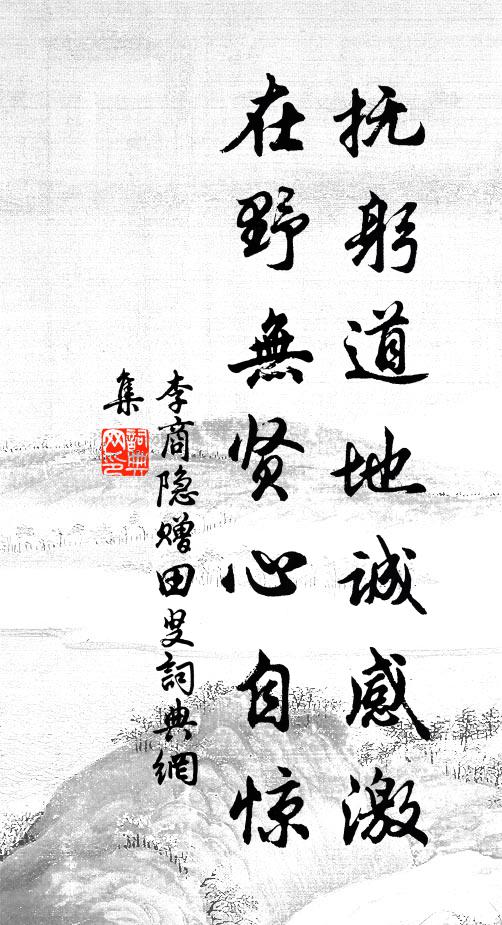 抚躬道地誠感激
在野無贤心自惊
李商隐赠田叟詞典網
集
詞典
网印